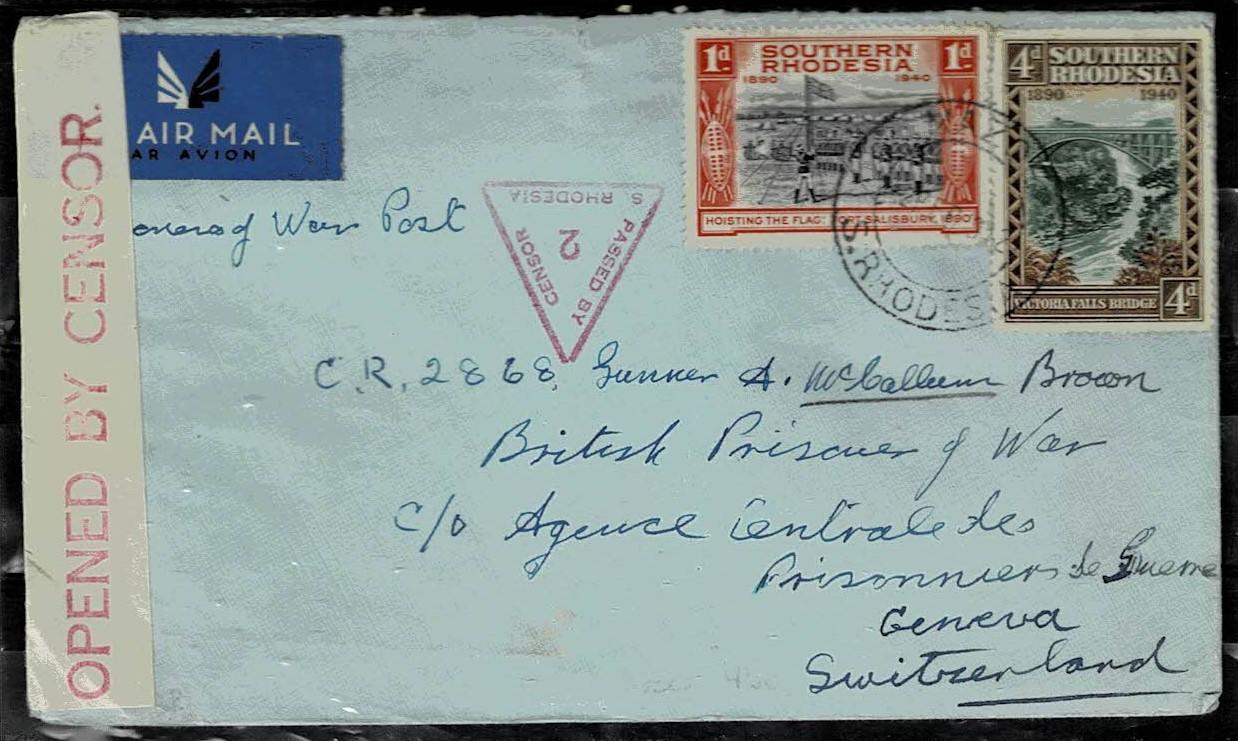 OPENED BY CENSOR.
AIR MAIL
AR AVION
of War Post
PASSED BY
CENSOR
2
S. RHODESIA
1d SOUTHERN RHODESIA 1d
1890 1940
HOISTING THE FLAG: FORT SALISBURY, 1890
4d SOUTHERN RHODESIA
1890 1940
VICTORIA FALLS BRIDGE 4d
S. RHODES
C.R. 2868, Gunner A. McCallum Brown
British Prisoner of War
c/o Agence Centrale des
Prisonniers de Guerre
Geneva
Switzerland